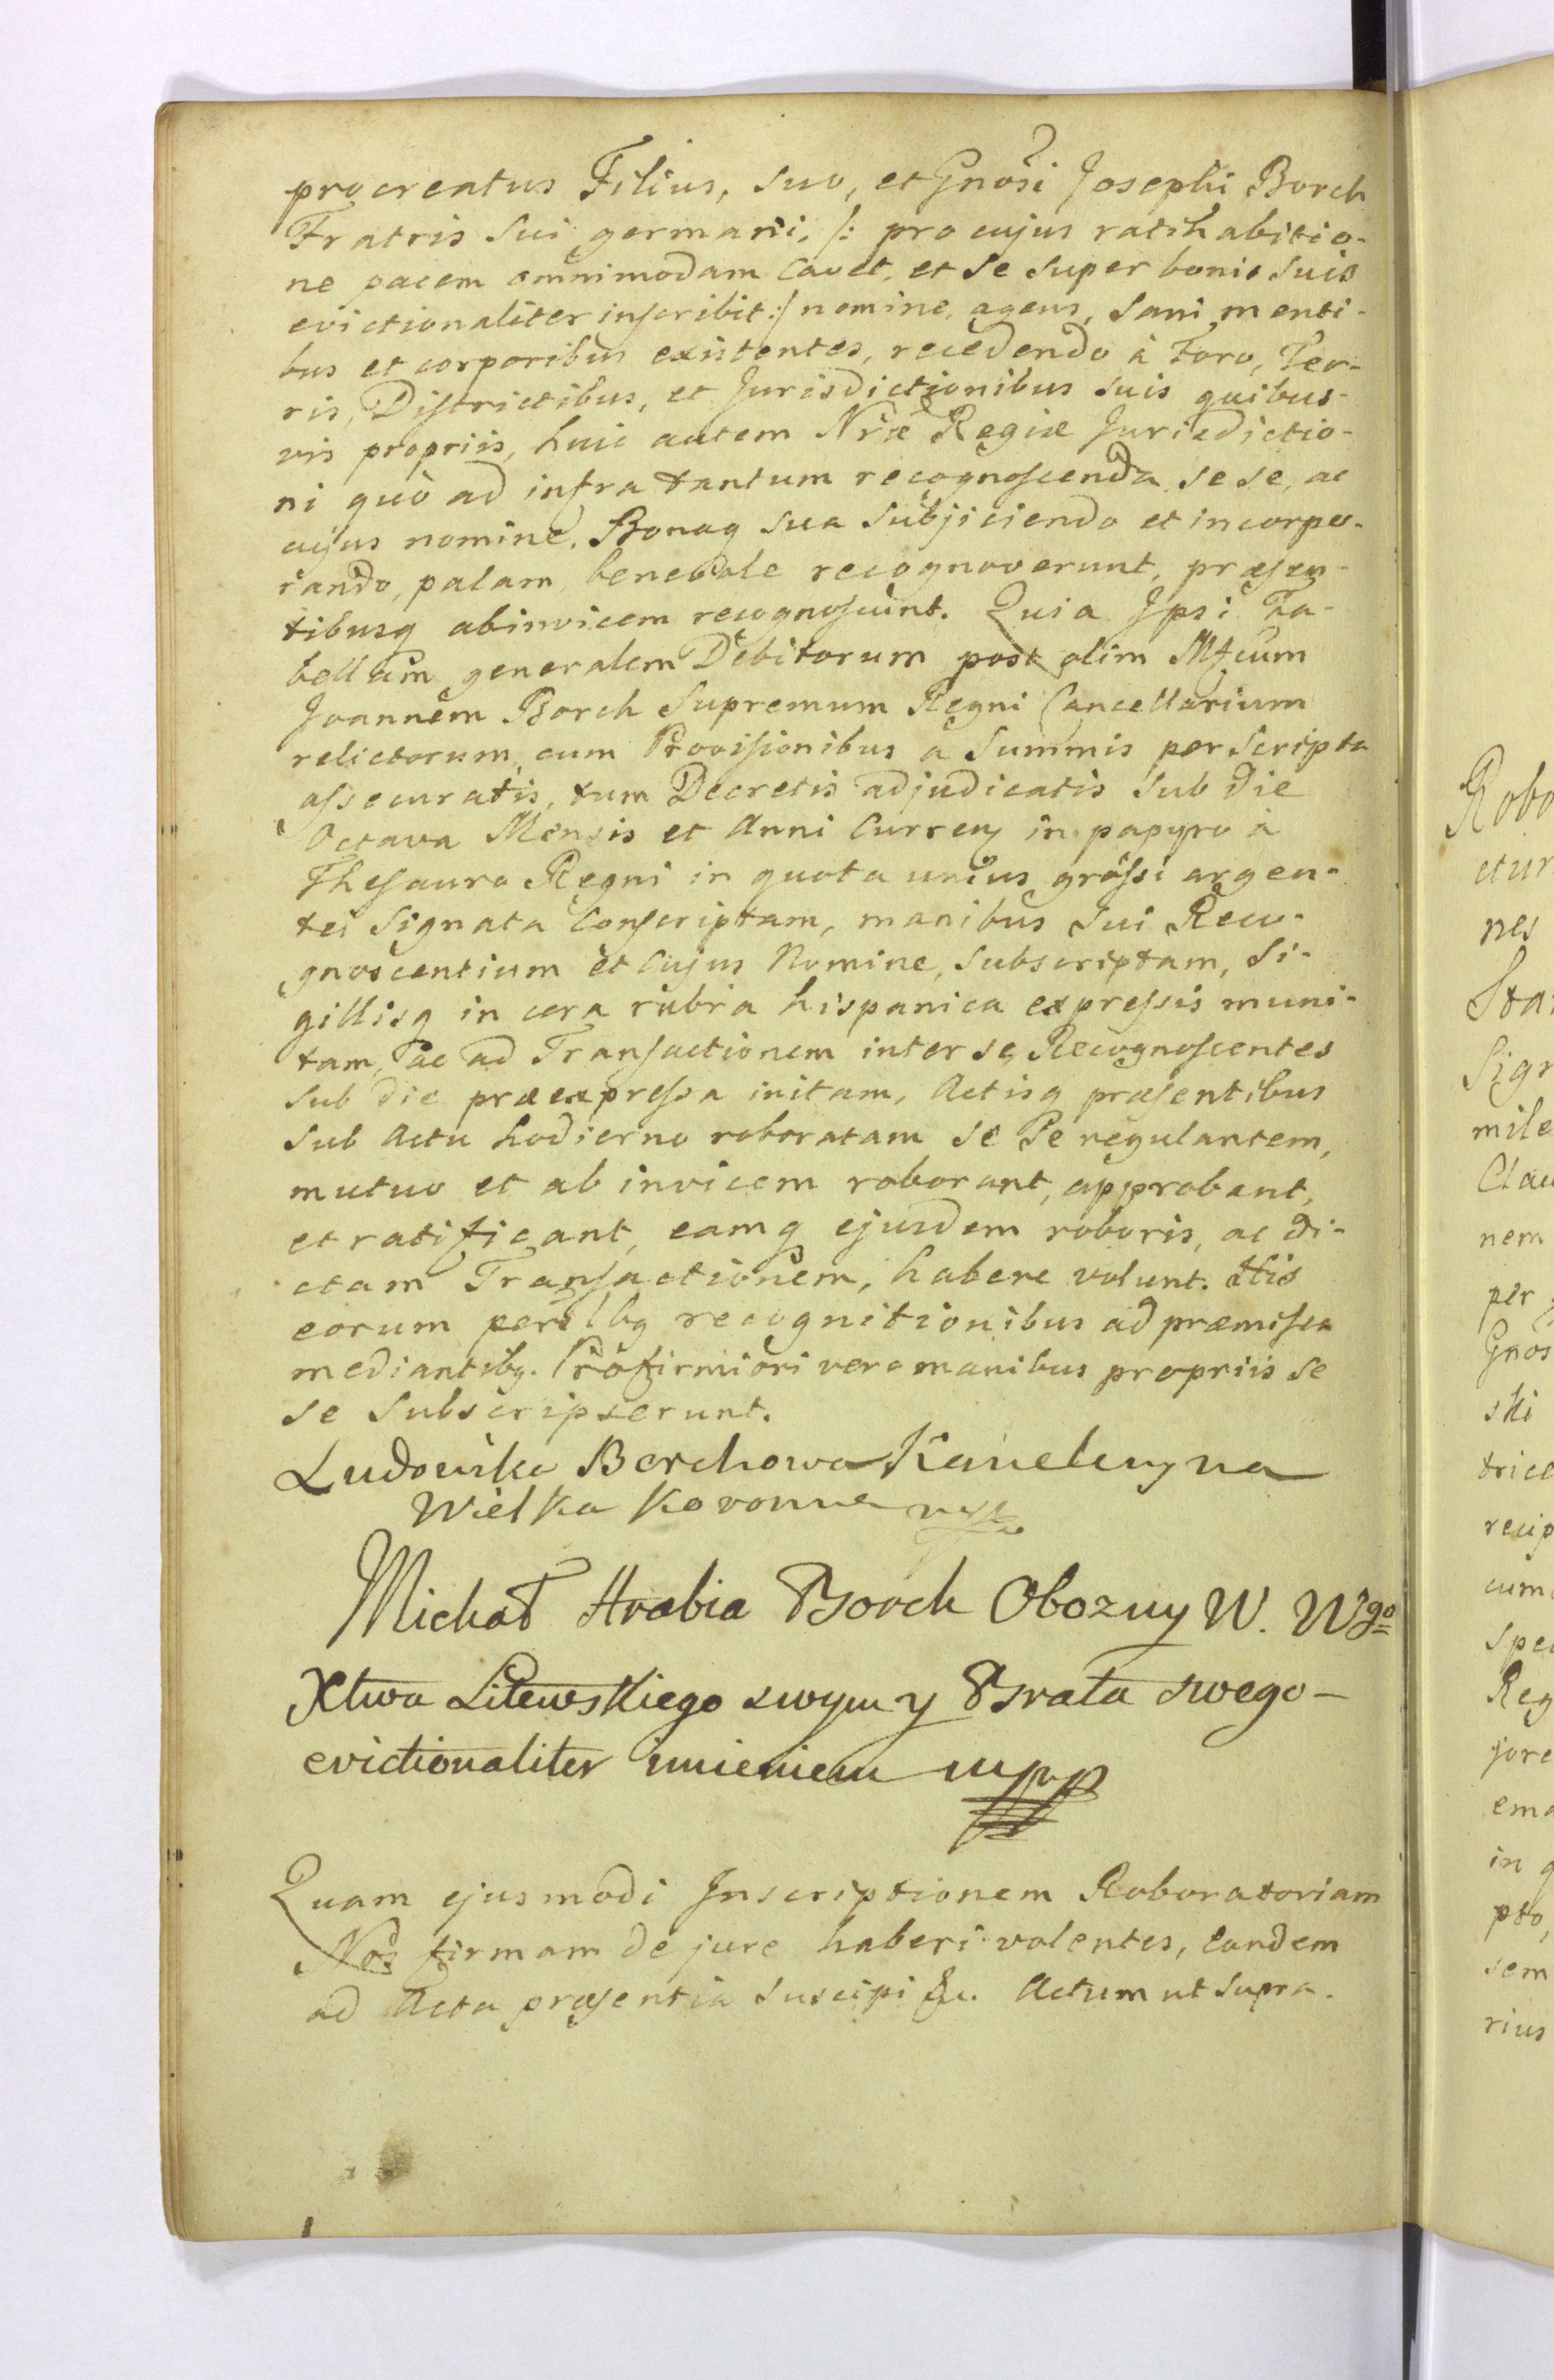 procreatus Filius, suo, et Gnosi Josephi Borch
Fratris sui germani, /: pro cujus ratihabitio-
ne pacem omnimodam cavet, et se super bonis suis
evictionaliter inscribit :/ nomine, agens, sani menti-
bus et corporibus existentes, recedendo à Foro, Ter-
ris, Districtibus, et Jurisdictionibus suis quibus-
vis propriis, huic autem Nrae Regiae Jurisdictio-
ni quò ad infra tantum recognoscenda sese, ac
cujus nomine, Bonaq sua subjiciendo et incorpo-
rando, palam, benevole recognoverunt, praesen-
tibusq abinvicem recognoscunt. Quia Ipsi Ta-
bellam generalem Debitorum post olim Mfcum
Joannem Borch Supremum Regni Cancellarium
relictorum, cum Provisionibus a Summis per scripta
assecuratis, tum Decretis adjudicatis sub die
Octava Mensis et Anni Curren in papyro à
Thesauro Regni in quota unius grossi argen-
tei signata Conscriptam, manibus sui Reco-
gnoscentium et cujus Nomine, subscriptam, Si-
gillisq in cera rubra hispanica expressis muni-
tam, ac ad Transactionem inter se Recognoscentes
sub die praeexpressa initam, Actisq praesentibus
sub actu hodierno roboratam se se regulantem,
mutuo et ab invicem roborant, approbant,
et ratificant, eamq ejusdem roboris, ac di-
ctam Transactionem, habere volunt. His
eorum recognitionibus ad praemissa
mediantibq. Pro firmiori vero manibus propriis se
se subscripserunt.
Ludowika Borchowa Kanclerzyna
Wielka Koronna mp
Michał Hrabia Borch Obozny W. Wgo
Xtwa Litewskiego swym y Brata swego –
evictionaliter imieniem mpp
Quam ejusmodi Inscriptionem Roboratoriam
Nos firmam de jure haberi volentes, Eandem
ad Acta praesentia suscipi &c. Actum ut supra.
Robo
etur
nes
Sta
Sign
mile
Clau
nem
per
Gnos
ski
trice
recip
cum
spe
Reg
jore
ema
in q
pto,
sem
rius